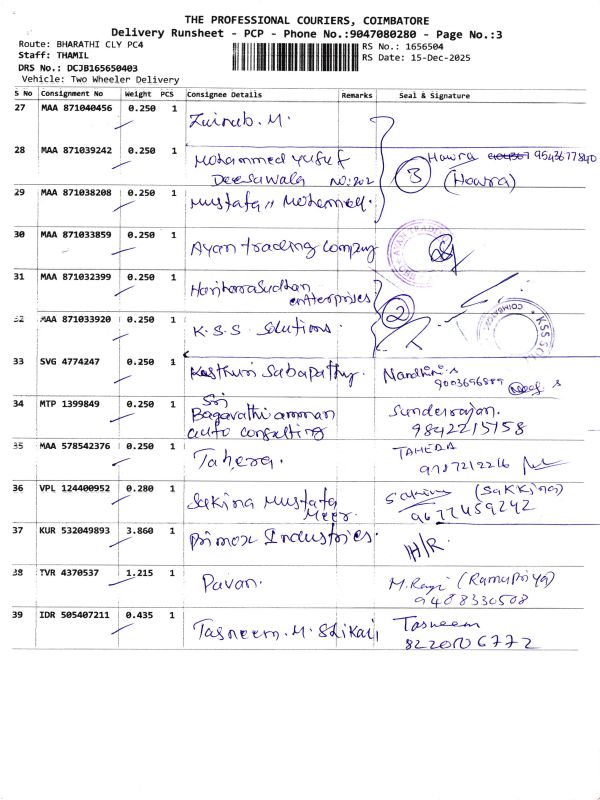 THE PROFESSIONAL COURIERS, COIMBATORE
Delivery Runsheet - PCP - Phone No.:9047080280 - Page No.:3
Route: BHARATHI CLY PC4
Staff: THAMIL
DRS No.: DCJB165650403
Vehicle: Two Wheeler Delivery
RS No.: 1656504
RS Date: 15-Dec-2025
S No Consignment No Weight PCS Consignee Details Remarks Seal & Signature
27 MAA 871040456 0.250 1 Zainab. M.
28 MAA 871039242 0.250 1 Mohammed Yusuf 3 Hawra 9543677840
Deesawala No:202 (Hawra)
29 MAA 871038208 0.250 1 Mustafa Mohammed.
30 MAA 871033859 0.250 1 Ayan trading company AYAN TRADI
31 MAA 871032399 0.250 1 Hariharasudhan
enterprises 2
32 MAA 871033920 0.250 1 K.S.S Solutions. KSS SOL COIMBATORE
33 SVG 4774247 0.250 1 Kasthuri Sabapathy. Nandhini.s
9003696889
34 MTP 1399849 0.250 1 Sri
Bagavathi amman Sunderrajan.
auto consulting 9842215758
35 MAA 578542376 0.250 1 Tahera. TAHERA
9787212216
36 VPL 124400952 0.280 1 Sakina Mustafa (Sakkina)
Meer. 9677459242
37 KUR 532049893 3.860 1 Primox Industries. H/R.
38 TVR 4370537 1.215 1 Pavan. M. (Ramapriya)
9488330508
39 IDR 505407211 0.435 1 Tasneem.M.Shikari Tasneem
8220706772